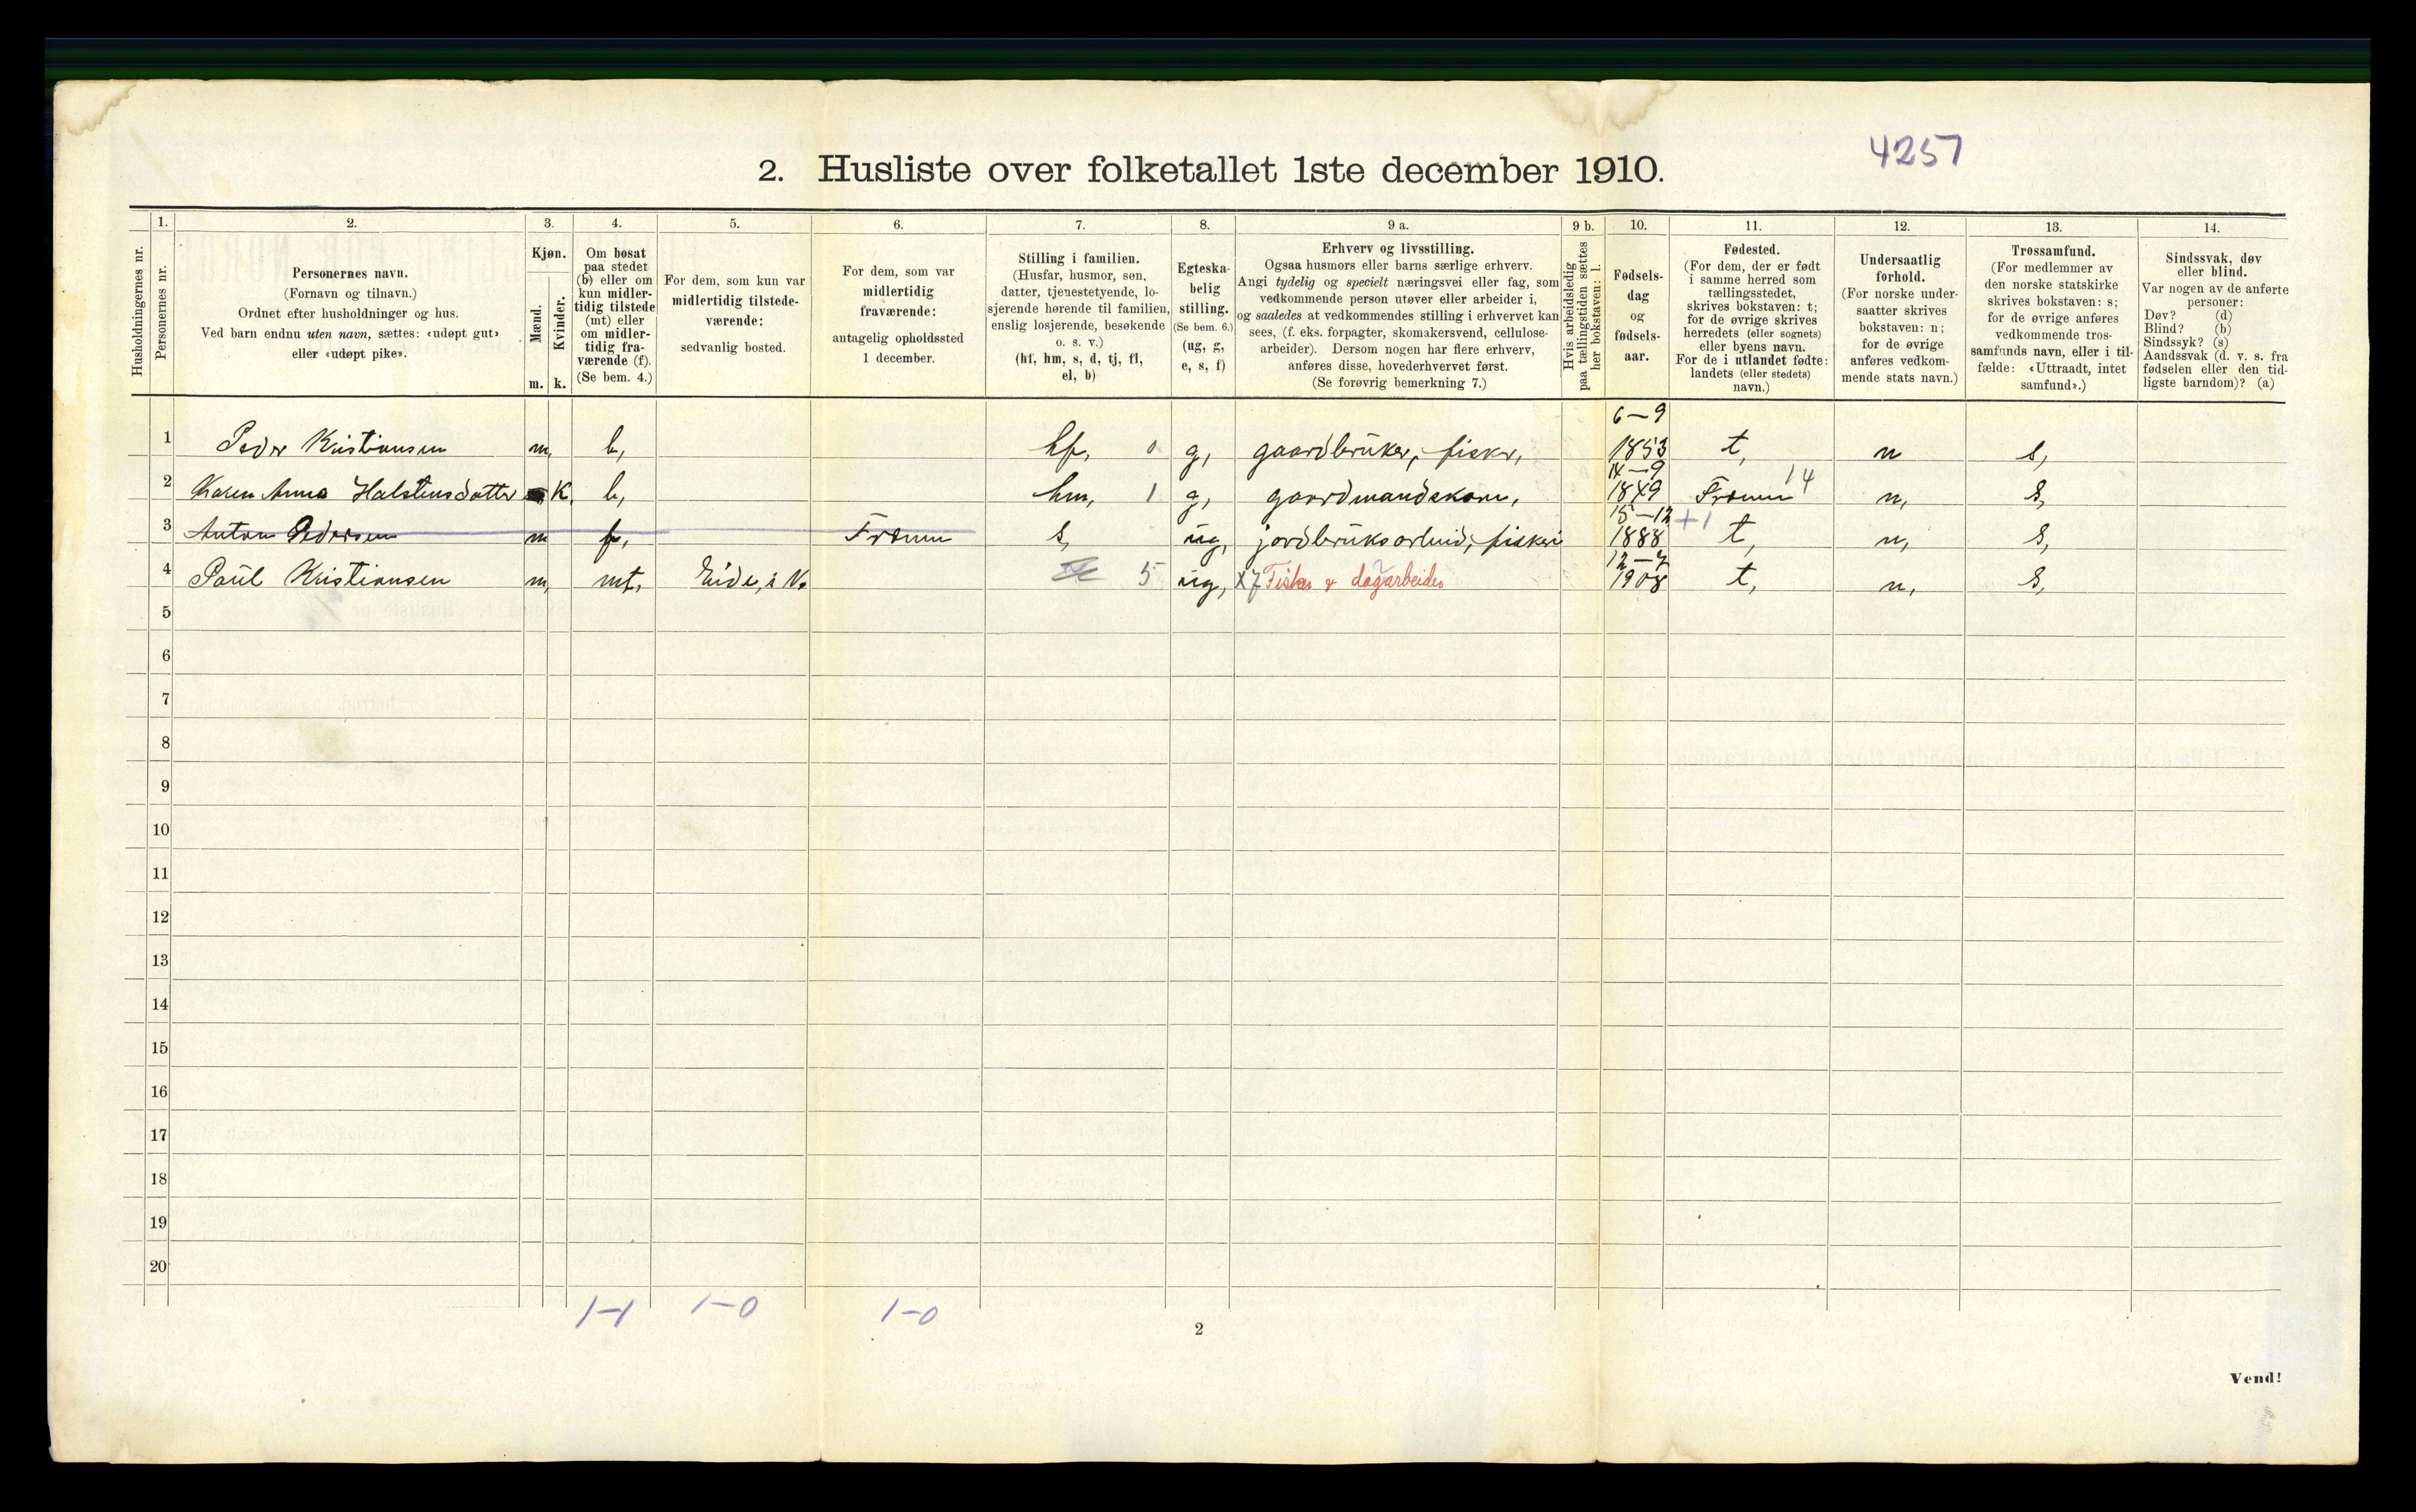 4257
2. Husliste over folketallet 1ste december 1910.
Husholdningernes nr.
1.
Personernes nr.
2.
Personernes navn.
(Fornavn og tilnavn.)
Ordnet efter husholdninger og hus.
Ved barn endnu uten navn, sættes: «udøpt gut»
eller «udøpt pike».
3.
Kjøn.
Mænd.
Kvinder.
m. k.
4.
Om bosat
paa stedet
(b) eller om
kun midler-
tidig tilstede
(mt) eller
om midler-
tidig fra-
værende (f).
(Se bem. 4.)
5.
For dem, som kun var
midlertidig tilstede-
værende:
sedvanlig bosted.
6.
For dem, som var
midlertidig
fraværende:
antagelig opholdssted
1 december.
7.
Stilling i familien.
(Husfar, husmor, søn,
datter, tjenestetyende, lo-
sjerende hørende til familien,
enslig losjerende, besøkende
o. s. v.)
(hf, hm, s, d, tj, fl,
el, b)
8.
Egteska-
belig
stilling.
(Se bem. 6.)
(ug, g,
e, s, f)
9 a.
Erhverv og livsstilling.
Ogsaa husmors eller barns særlige erhverv.
Angi tydelig og specielt næringsvei eller fag, som
vedkommende person utøver eller arbeider i,
og saaledes at vedkommendes stilling i erhvervet kan
sees, (f. eks. forpagter, skomakersvend, cellulose-
arbeider). Dersom nogen har flere erhverv,
anføres disse, hovederhvervet først.
(Se forøvrig bemerkning 7.)
9 b.
Hvis arbeidsledig
paa tællingstiden sættes
her bokstaven: l.
10.
Fødsels-
dag
og
fødsels-
aar.
11.
Fødested.
(For dem, der er født
i samme herred som
tællingsstedet,
skrives bokstaven: t;
for de øvrige skrives
herredets (eller sognets)
eller byens navn.
For de i utlandet fødte:
landets (eller stedets)
navn.)
12.
Undersaatlig
forhold.
(For norske under-
saatter skrives
bokstaven: n;
for de øvrige
anføres vedkom-
mende stats navn.)
13.
Trossamfund.
(For medlemmer av
den norske statskirke
skrives bokstaven: s;
for de øvrige anføres
vedkommende tros-
samfunds navn, eller i til-
fælde: «Uttraadt, intet
samfund».)
14.
Sindssvak, døv
eller blind.
Var nogen av de anførte
personer:
Døv? (d)
Blind? (b)
Sindssyk? (s)
Aandssvak (d. v. s. fra
fødselen eller den tid-
ligste barndom)? (a)
6-9
1 Peder Kristiansen m, b, hf, 0 g, gaardbruker, fisker, 1853 t, n s,
14-9
2 Karen Anna Halstensdatter K, b, hm, 1 g, gaardmandskone, 1849 Frænen 14 n, s,
15-12
3 Anton Pedersen m f, Frænen s, ug, jordbruksarbeid, fiskeri 1888 +1 t, n, s,
12-7
4 Paul Kristiansen m, mt, Eide, i N. 5 ug, x7 Fisker & dagarbeider 1908 t, n, s,
5
6
7
8
9
10
11
12
13
14
15
16
17
18
19
20
1-1 1-0 1-0
2
Vend!